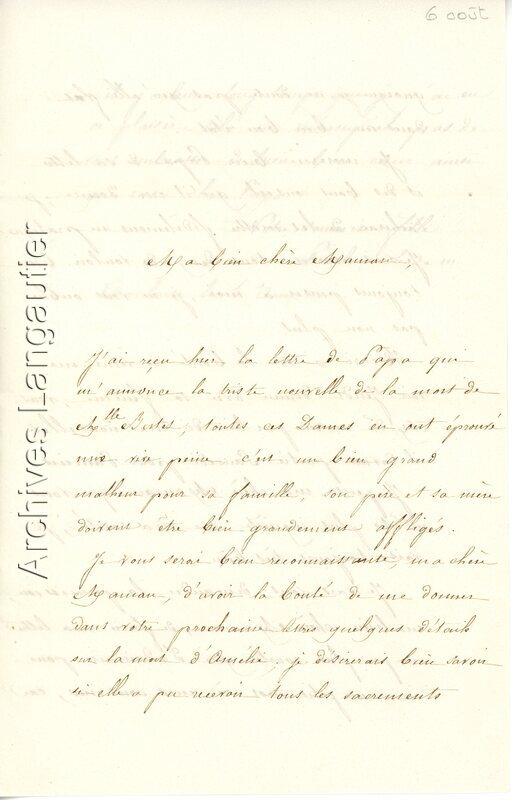 6 août
Ma bien chère Maman,
J'ai reçu hier la lettre de Papa qui
m'annonce la triste nouvelle de la mort de
Mlle Bertes, toutes ces Dames en ont éprouvé
une vive peine c'est un bien grand
malheur pour sa famille, son père et sa mère
doivent être bien grandement affligés.
Je vous serai bien reconnaissante, ma chère
Maman, d'avoir la bonté de me donner
dans votre prochaine lettre quelques détails
sur la mort d'Amélie. je désirerais bien savoir
si elle a pu recevoir tous les sacrements
Archives Langautier